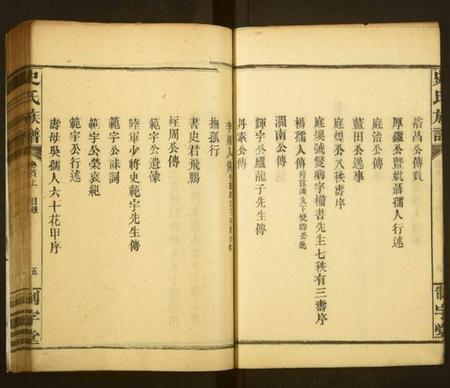 史氏族譜
制字堂
啓昌公傳贊
厚鑑公暨妣聶孺人行述
庭洽公傳
藍田公逸事
庭煜公八秩壽序
庭爔號燮卿字楷書先生七秩有三壽序
楊孺人傳
潤南公傳
輝字公廬龍子先生傳
丹泰公傳
李孺人傳
撫孤行
書史君飛鵬
椬周公傳
範字公遺像
陸軍少將史範宇先生傳
範宇公誄詞
範宇公榮哀錄
範宇公行述
壽母吳孺人六十花甲序
史氏族譜
卷首上
目錄
五
制字堂